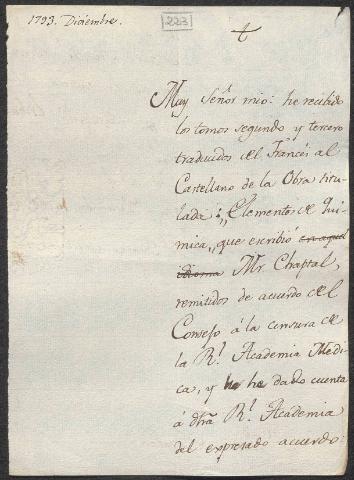 1793. Diciembre.
223
Muy Señor mio: he recibido
los tomos segundo y tercero
traducidos del Francés al
Castellano de la Obra titu-
lada: „Elementos de Quí-
mica„ que escribió en aquel
idioma Mr. Chaptal,
remitidos de acuerdo del
Consejo á la censura de
la Rl. Academia Medi-
ca, y he dado cuenta
á dha Rl. Academia
del expresado acuerdo: